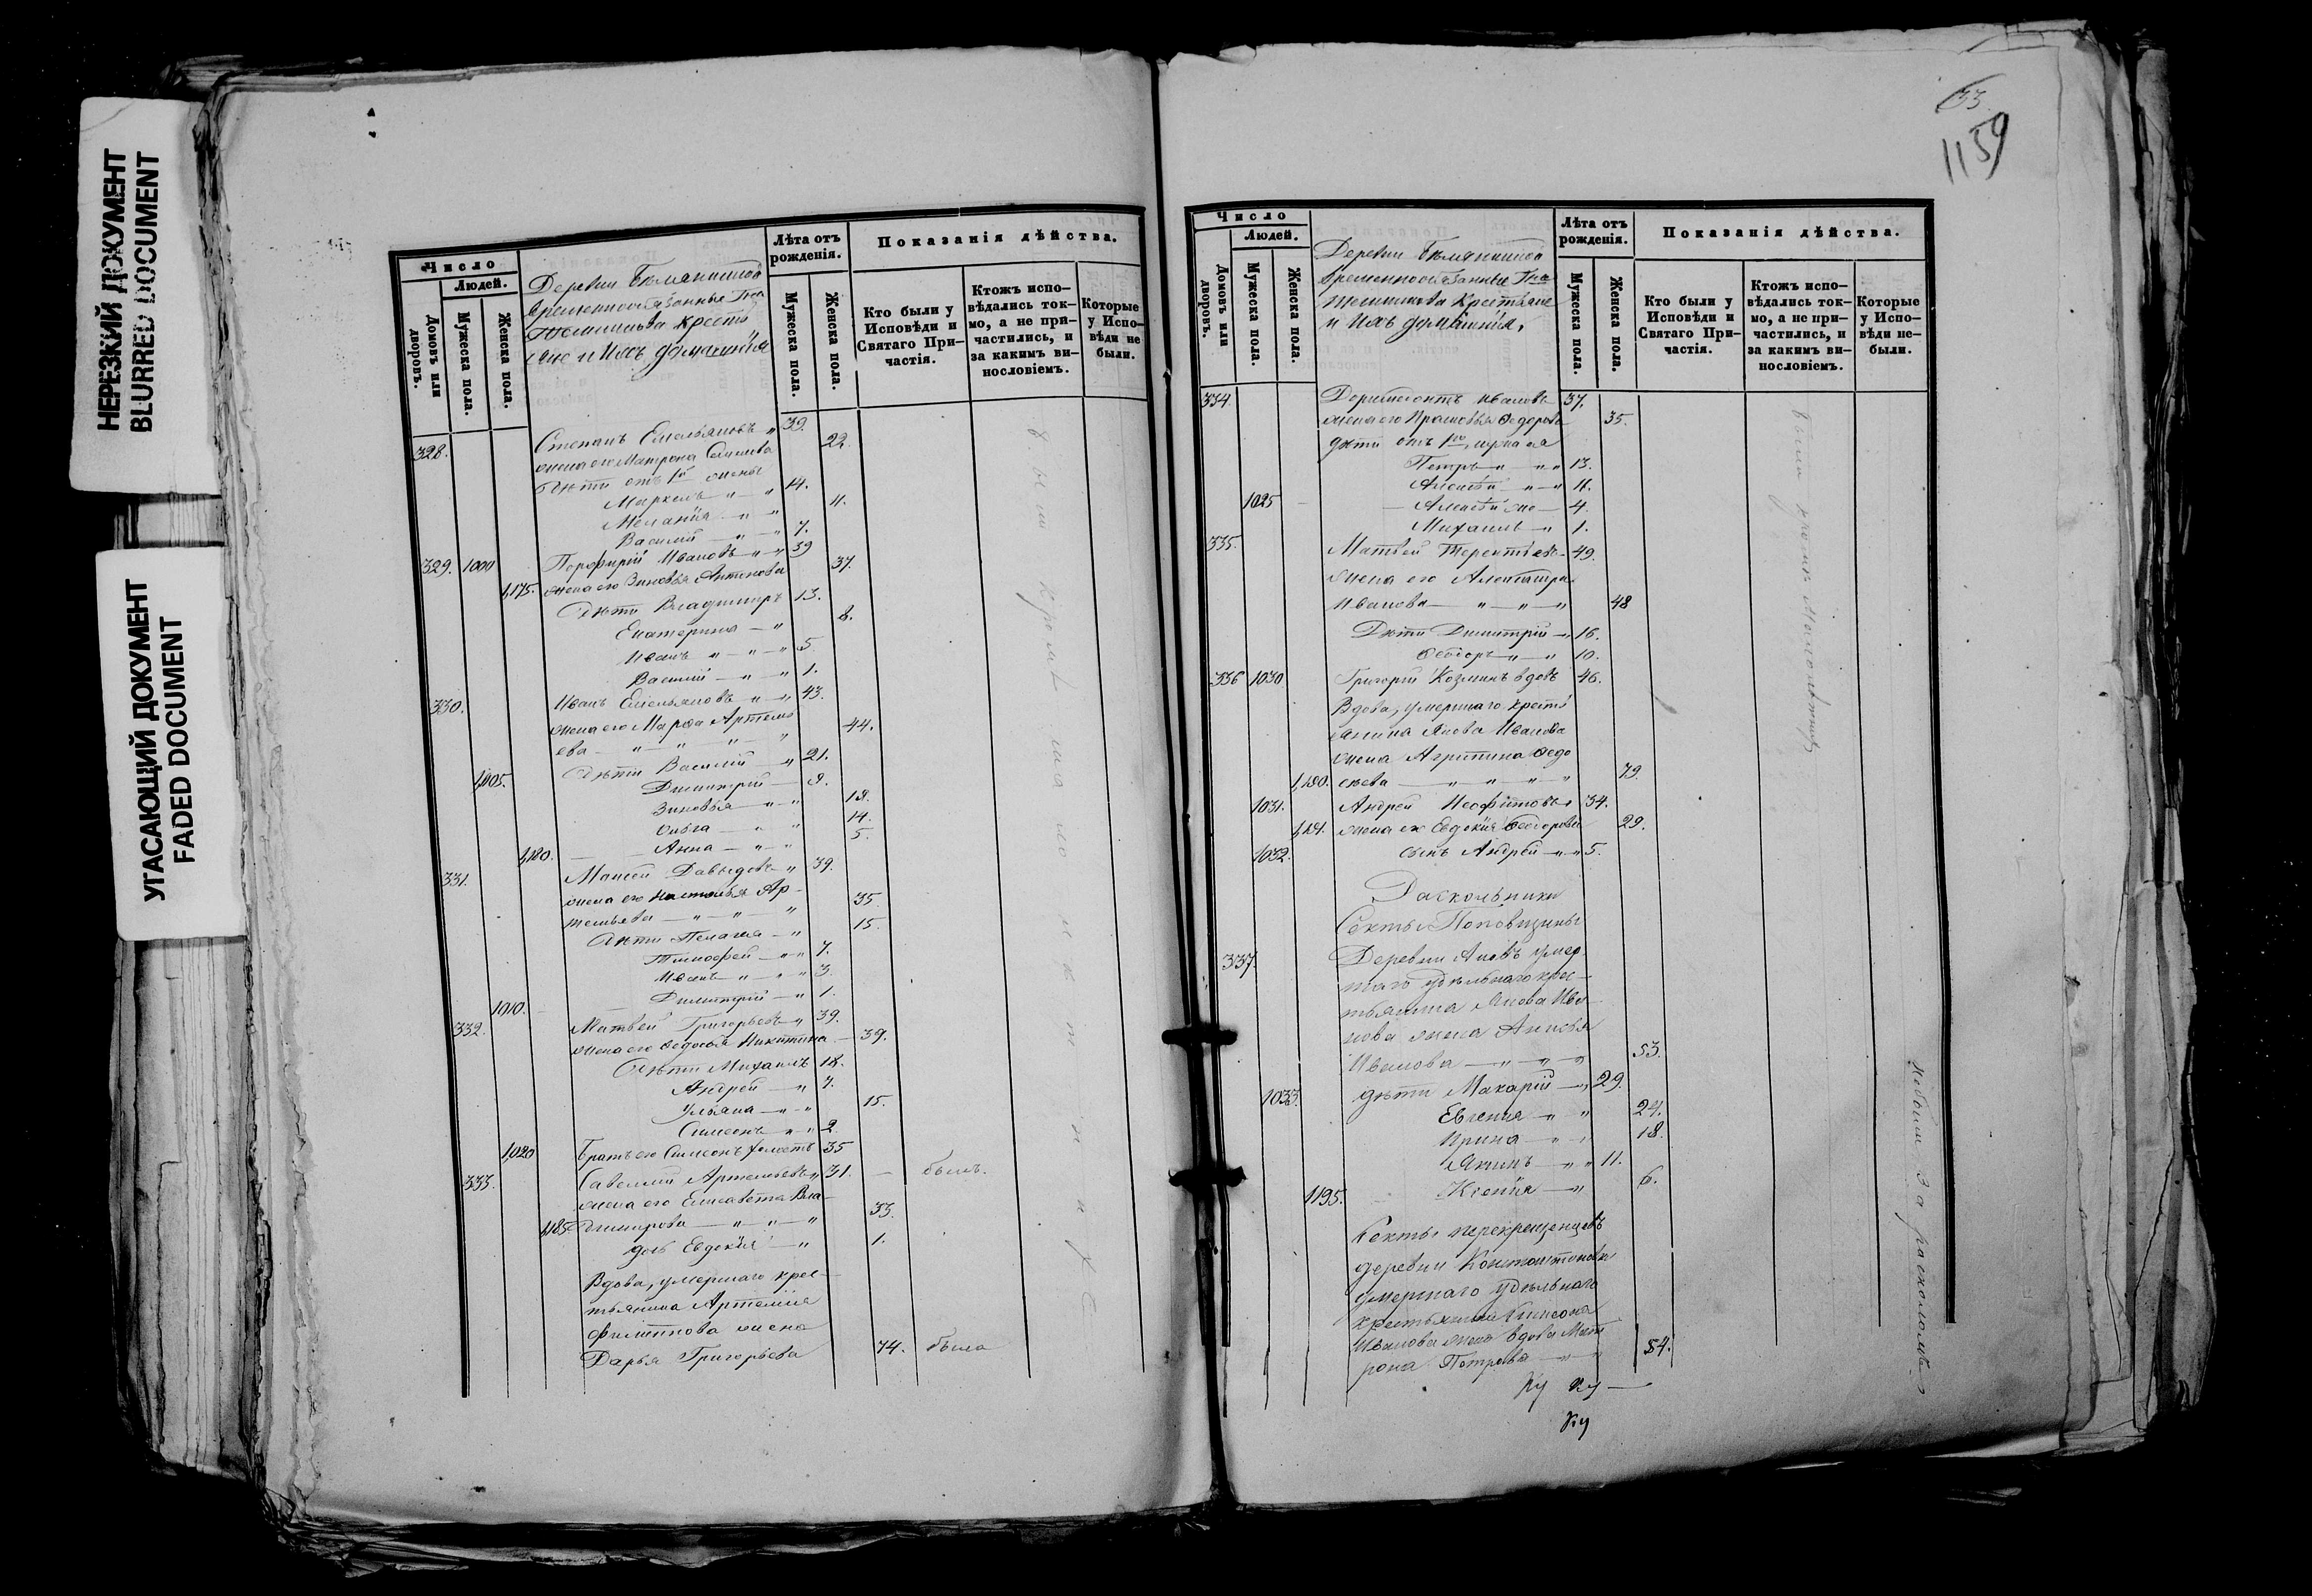 НЕРЕЗКИЙ ДОКУМЕНТ
BLURRED DOCUMENT
УГАСАЮЩИЙ ДОКУМЕНТ
FADED DOCUMENT
Число
Людей.
Домовъ или дворовъ.
Мужеска пола.
Женска пола.
Деревни
временнообязанные Гна
кресть
яне и Ихъ домашнія
Лѣта отъ рожденія.
Мужеска пола.
Женска пола.
Показанія дѣйства.
Кто были у Исповѣди и Святаго Причастія.
Ктожъ исповѣдались токмо, а не причастились, и за какимъ винословіемъ.
Которые у Исповѣди не были.
328. Степанъ Емельяновъ 39.
жена его Матрона 22.
дѣти отъ 1й жены
Маркелъ 14.
Меланія 11.
Василій 7.
329. 1000 Порфирій Ивановъ 39
1,175. жена его Зиновья Антонова 37.
дѣти Владимиръ 13.
Екатерина 8.
Иванъ 5.
Василій 1.
330. Иванъ Емельяновъ 43.
жена его Марѳа Артемь
ева 44.
1,005. дѣти Василій 21.
Димитрій 9.
Зиновья 18.
Ольга 14.
1,180. Анна 5.
331. Моисей Давыдовъ 39.
жена его Наталья Ар-
темьева 35
дѣти Пелагея 15
Тимофей 7.
Иванъ 3.
1010. Димитрій 1.
332. Матвей Григорьевъ 39.
жена его Ѳедосья Никитина 39.
дѣти Михаилъ 18.
Андрей 7.
Ульяна 15.
Симеонъ 2.
1,020 Братъ его Симеонъ холостъ 35
333. Савелий Артемьевъ 31. былъ.
жена его Елисавета Вла-
1,185 димирова 33.
дочь Евдокія 1.
Вдова, умершаго крес-
тьянина Артемія
Филиппова жена
Дарья Григорьева 74. была
33
1159
Число
Людей.
Домовъ или дворовъ.
Мужеска пола.
Женска пола.
Деревни
временнообязанные Гна
Крестьяне
и Ихъ домашнія.
Лѣта отъ рожденія.
Мужеска пола.
Женска пола.
Показанія дѣйства.
Кто были у Исповѣди и Святаго Причастія.
Ктожъ исповѣдались токмо, а не причастились, и за какимъ винословіемъ.
Которые у Исповѣди небыли.
334. Доримедонтъ Ивановъ 37.
жена его Прасковья Ѳедорова 35.
дѣти отъ 1го мужа ея
Петръ 13.
Алексѣй 11.
1025 Алексѣй же 4.
Михаилъ 1.
335. Матвей Терентьевъ 49.
жена его Александра
Иванова 48
Дѣти Димитрій 16.
Ѳеодоръ 10.
336 1030 Григорій Козминъ вдовъ 46.
Вдова, умершаго кресть
янина Якова Иванова
жена Агрипина Ѳедо
1,190. сѣева 79.
1031. Андрей Неофитовъ 34.
1,191. жена его Евдокія Ѳеодорова 29.
1032. сынъ Андрей 5.
Раскольники
Секты Поповщины
337. Деревни умер-
шаго удѣльнаго крес-
тьянина Якова Ива-
нова жена Анисья
Иванова 53.
1033. дѣти Макарій 29.
Евгенія 24.
Ирина 18.
Якимъ 11.
1195. Ксенія 6.
Секты перекрещенцевъ
деревни Константиновки
умершаго удѣльнаго
крестьянина Симеона
Иванова жена вдова Мат
рона Петрова 54.
небыли за расколомъ